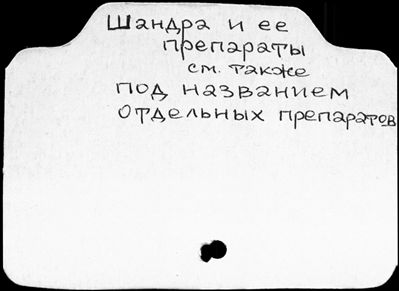 Шандра и ее
препараты
см. также
под названием
отдельных препаратов